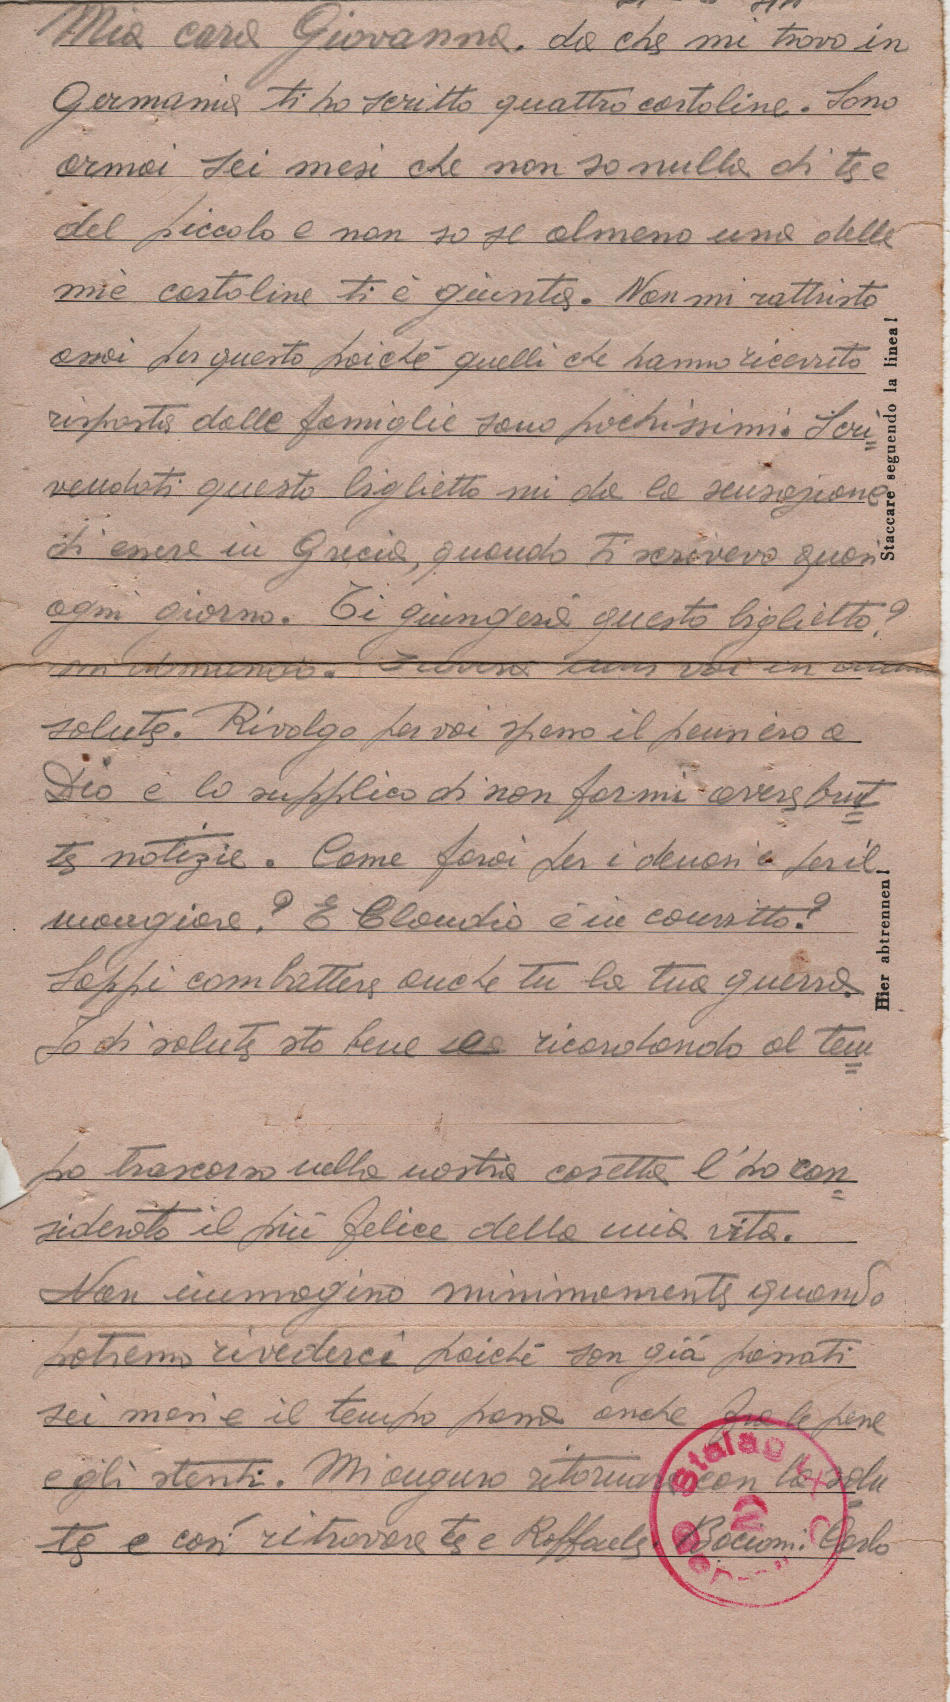 Mia cara Giovanna. da che mi trovo in
Germania ti ho scritto quattro cartoline. Sono
ormai sei mesi che non so nulla di te e
del piccolo e non so se almeno una delle
mie cartoline ti è giunta. Non mi rattristo
assai per questo poichè quelli che hanno ricevuto
risposta dalle famiglie sono pochissimi. Scri=
vendoti questo biglietto mi da la sensazione
di essere in Grecia, quando ti scrivevo quasi
ogni giorno. Ti giungerà questo biglietto?
mi domando. voi in
salute. Rivolgo per voi spesso il pensiero a
Dio e lo supplico di non farmi avere brut=
te notizie. Come farai per i denari e per il
mangiare? E Claudio è in convitto?
Sappi combattere anche tu la tua guerra.
Io di salute sto bene ricordando al tem=
po trascorso nella nostra casetta l'ho con=
siderato il più felice della mia vita.
Non immagino minimamente quando
potremo rivederci poichè son già passati
sei mesi e il tempo passa anche fra le pene
e gli stenti. Mi auguro ritornare con la salu
te e così ritrovare te e Raffaele. Carlo
Staccare seguendo la linea!
Hier abtrennen!
Stalag
2